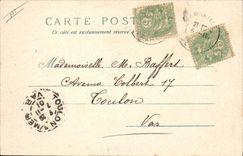 CARTE POSTALE
Ce côté est exclusivement réservé à
Mademoiselle M. Raffert
Avenue Colbert 17
Toulon
Var
TOULON
VAR